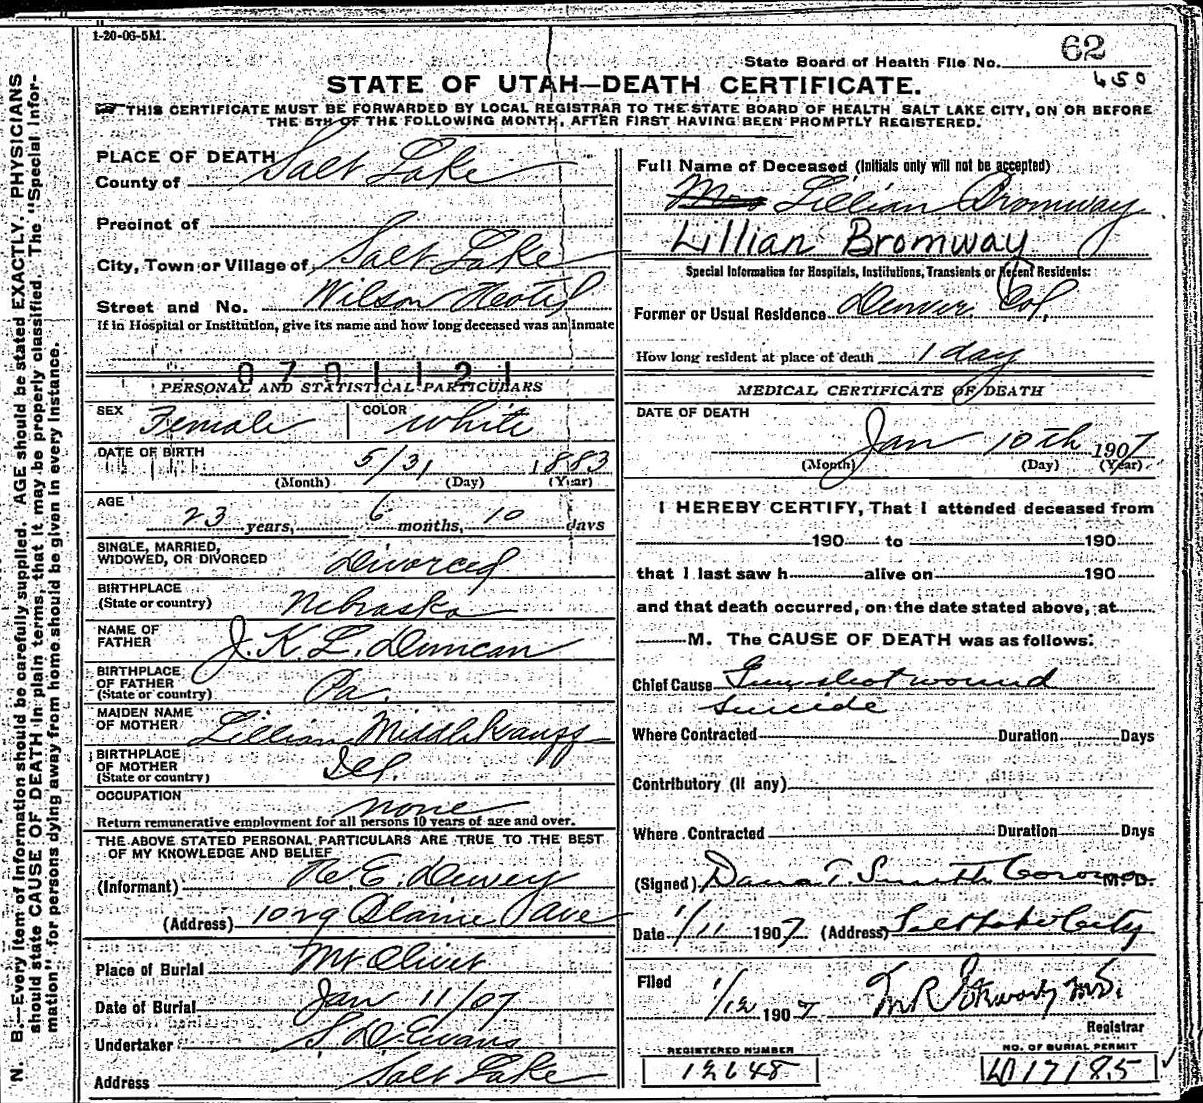 1-20-06-5M.
State Board of Health File No. 62
450
STATE OF UTAH—DEATH CERTIFICATE.
THIS CERTIFICATE MUST BE FORWARDED BY LOCAL REGISTRAR TO THE STATE BOARD OF HEALTH, SALT LAKE CITY, ON OR BEFORE
THE 5TH OF THE FOLLOWING MONTH, AFTER FIRST HAVING BEEN PROMPTLY REGISTERED.
PLACE OF DEATH
County of Salt Lake
Precinct of
City, Town or Village of Salt Lake
Street and No. Wilson Hotel
If in Hospital or Institution, give its name and how long deceased was an Inmate
0701121
PERSONAL AND STATISTICAL PARTICULARS
SEX Female COLOR White
DATE OF BIRTH 5/31 1883
(Month) (Day) (Year)
AGE
23 years, 6 months, 10 days
SINGLE, MARRIED,
WIDOWED, OR DIVORCED Divorced
BIRTHPLACE
(State or country) Nebraska
NAME OF
FATHER J. K. L. Duncan
BIRTHPLACE
OF FATHER
(State or country) Pa.
MAIDEN NAME
OF MOTHER Lillian Middlekauff
BIRTHPLACE
OF MOTHER
(State or country)
OCCUPATION none
Return remunerative employment for all persons 10 years of age and over.
THE ABOVE STATED PERSONAL PARTICULARS ARE TRUE TO THE BEST
OF MY KNOWLEDGE AND BELIEF
(Informant) E. Dewey
(Address) 1029 Blaine Ave
Place of Burial Mt Olivet
Date of Burial Jan 11/07
Undertaker S D Evans
Address Salt Lake
Full Name of Deceased (Initials only will not be accepted)
Mrs Lillian Bromway
Lillian Bromway
Special Information for Hospitals, Institutions, Transients or Recent Residents:
Former or Usual Residence Denver Col.
How long resident at place of death 1 day
MEDICAL CERTIFICATE OF DEATH
DATE OF DEATH
Jan 10th 1907
(Month) (Day) (Year)
I HEREBY CERTIFY, That I attended deceased from
190 to 190
that I last saw h alive on 190
and that death occurred, on the date stated above, at
M. The CAUSE OF DEATH was as follows:
Chief Cause Gun shot wound
Suicide
Where Contracted Duration Days
Contributory (if any)
Where Contracted Duration Days
(Signed) Dana T. Smith Coroner M. D.
Date 1/11 1907 (Address) Salt Lake City
Filed 1/12 1907 M.D.
Registrar
REGISTERED NUMBER
12648
NO. OF BURIAL PERMIT
17185
N. B.—Every item of information should be carefully supplied. AGE should be stated EXACTLY. PHYSICIANS
should state CAUSE OF DEATH in plain terms, that it may be properly classified. The "Special Infor-
mation" for persons dying away from home should be given in every instance.